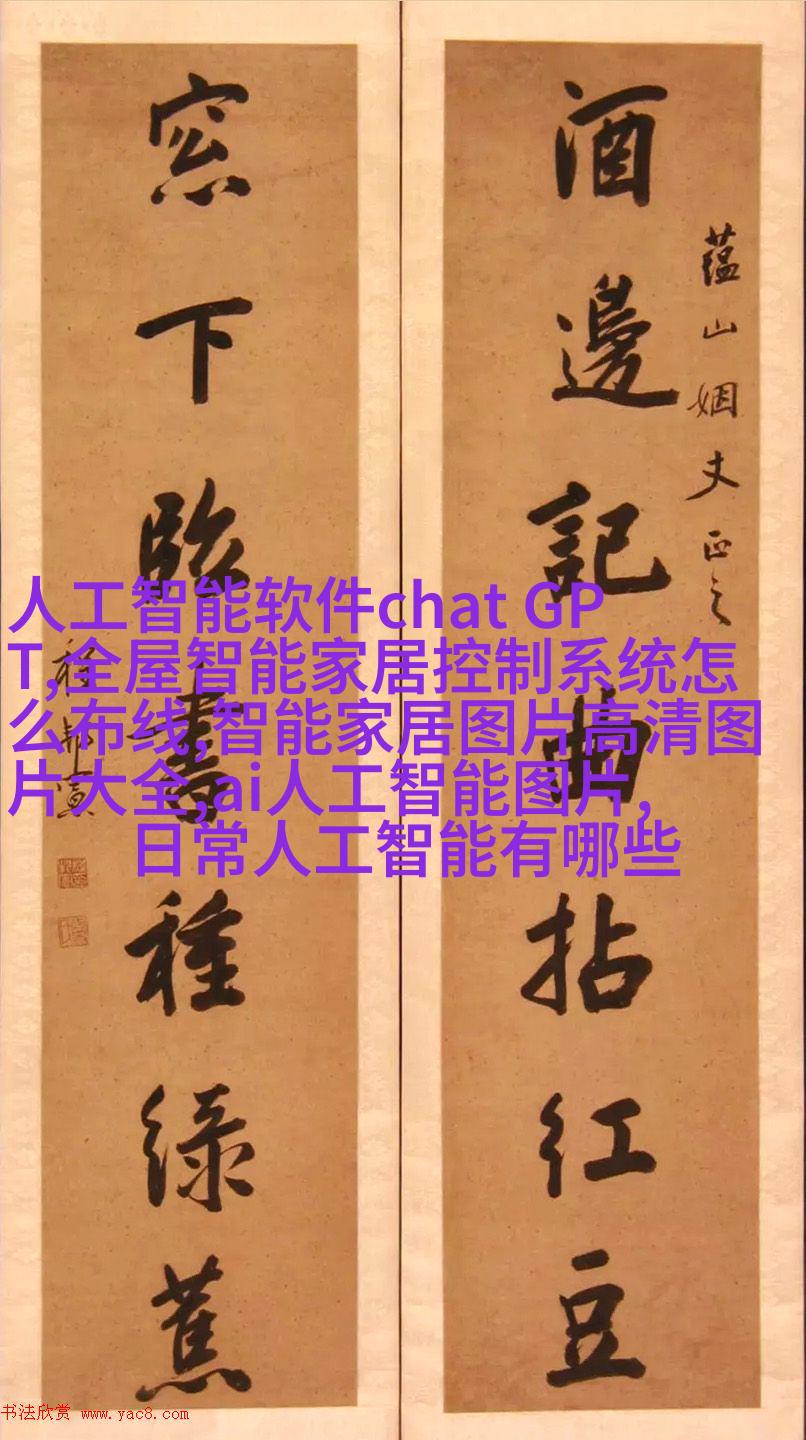 蘊山姻丈正之
酒邊記曲拈紅豆
窓下臨書種綠蕉
程邦憲
人工智能软件chat GP
T,全屋智能家居控制系统怎
么布线,智能家居图片高清图
片大全,ai人工智能图片,
日常人工智能有哪些
书法欣赏 www.yac8.com